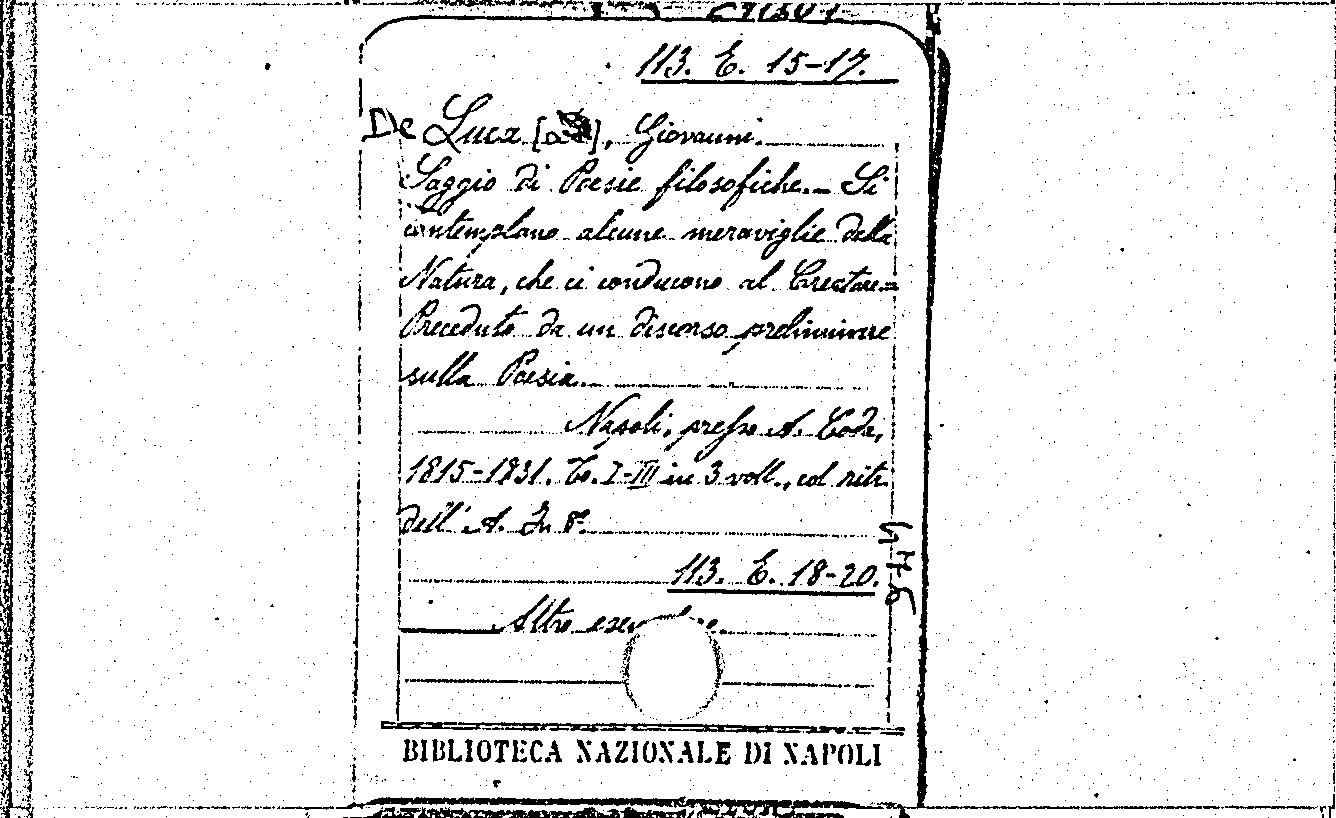 113. E. 15-17.
De Luca [a], Giovanni.
Saggio di Poesie filosofiche.- Si
contemplano alcune meraviglie della
Natura, che ci conducono al Creatore.=
Preceduto da un discorso preliminare
sulla Poesia.
Napoli, presso A. Coda,
1815-1831. T. I-III in 3 voll., col ritr.
dell' A. In 8º
113. E. 18-20.
Altro
BIBLIOTECA NAZIONALE DI NAPOLI